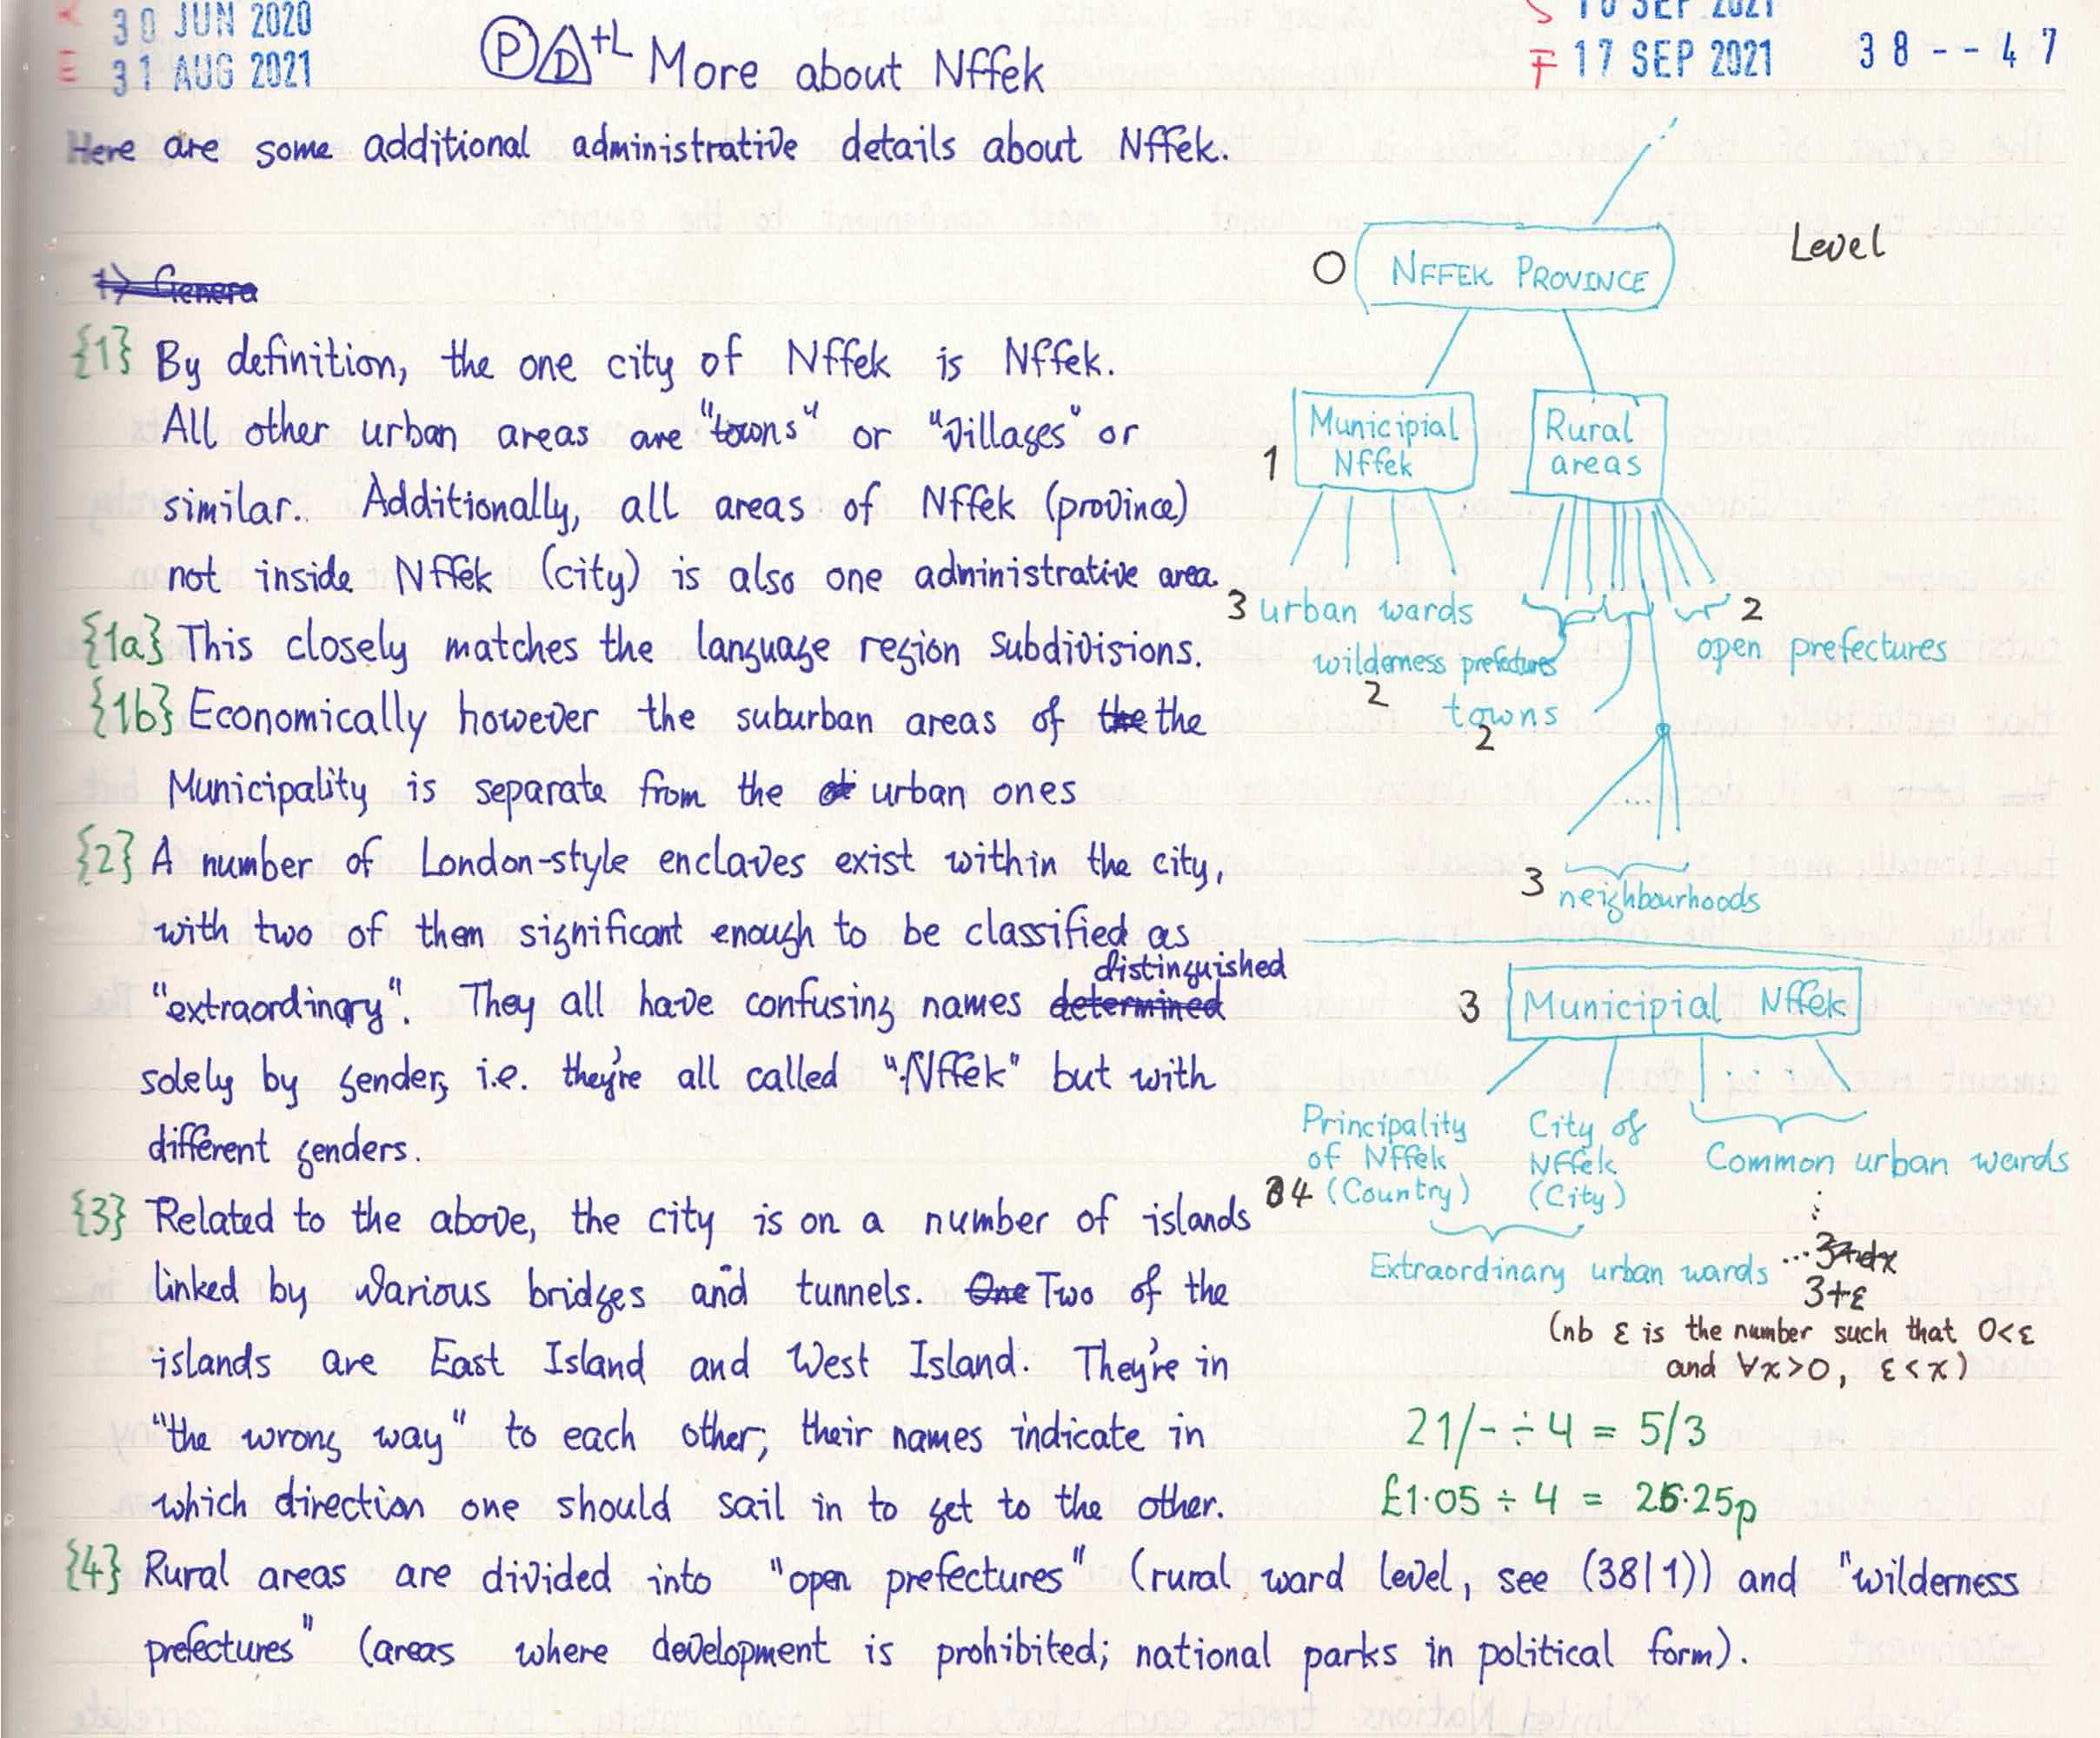 30 JUN 2020
E 31 AUG 2021
P D +L More about Nffek
S 16 SEP 2021
F 17 SEP 2021
38--47
Here are some additional administrative details about Nffek.
1) Genera
{1} By definition, the one city of Nffek is Nffek.
All other urban areas are "towns" or "villages" or
similar. Additionally, all areas of Nffek (province)
not inside Nffek (city) is also one administrative area.
{1a} This closely matches the language region subdivisions.
{1b} Economically however the suburban areas of the the
Municipality is separate from the urban ones
{2} A number of London-style enclaves exist within the city,
with two of them significant enough to be classified as
"extraordinary". They all have confusing names determined distinguished
solely by gender, i.e. they're all called "Nffek" but with
different genders.
{3} Related to the above, the city is on a number of islands
linked by various bridges and tunnels. One Two of the
islands are East Island and West Island. They're in
"the wrong way" to each other; their names indicate in
which direction one should sail in to get to the other.
{4} Rural areas are divided into "open prefectures" (rural ward level, see (38|1)) and "wilderness
prefectures" (areas where development is prohibited; national parks in political form).
Level
0 NFFEK PROVINCE
1
Municipial
Nffek
Rural
areas
3 urban wards
wilderness prefectures
2
towns
2
2
open prefectures
3 neighbourhoods
3 Municipial Nffek
Principality
of Nffek
4 (Country)
City of
Nffek
(City)
Common urban wards
Extraordinary urban wards
...3+dx
3+ε
(nb ε is the number such that 0<ε
and ∀x>0, ε<x)
21/- ÷ 4 = 5/3
£1·05 ÷ 4 = 26·25p